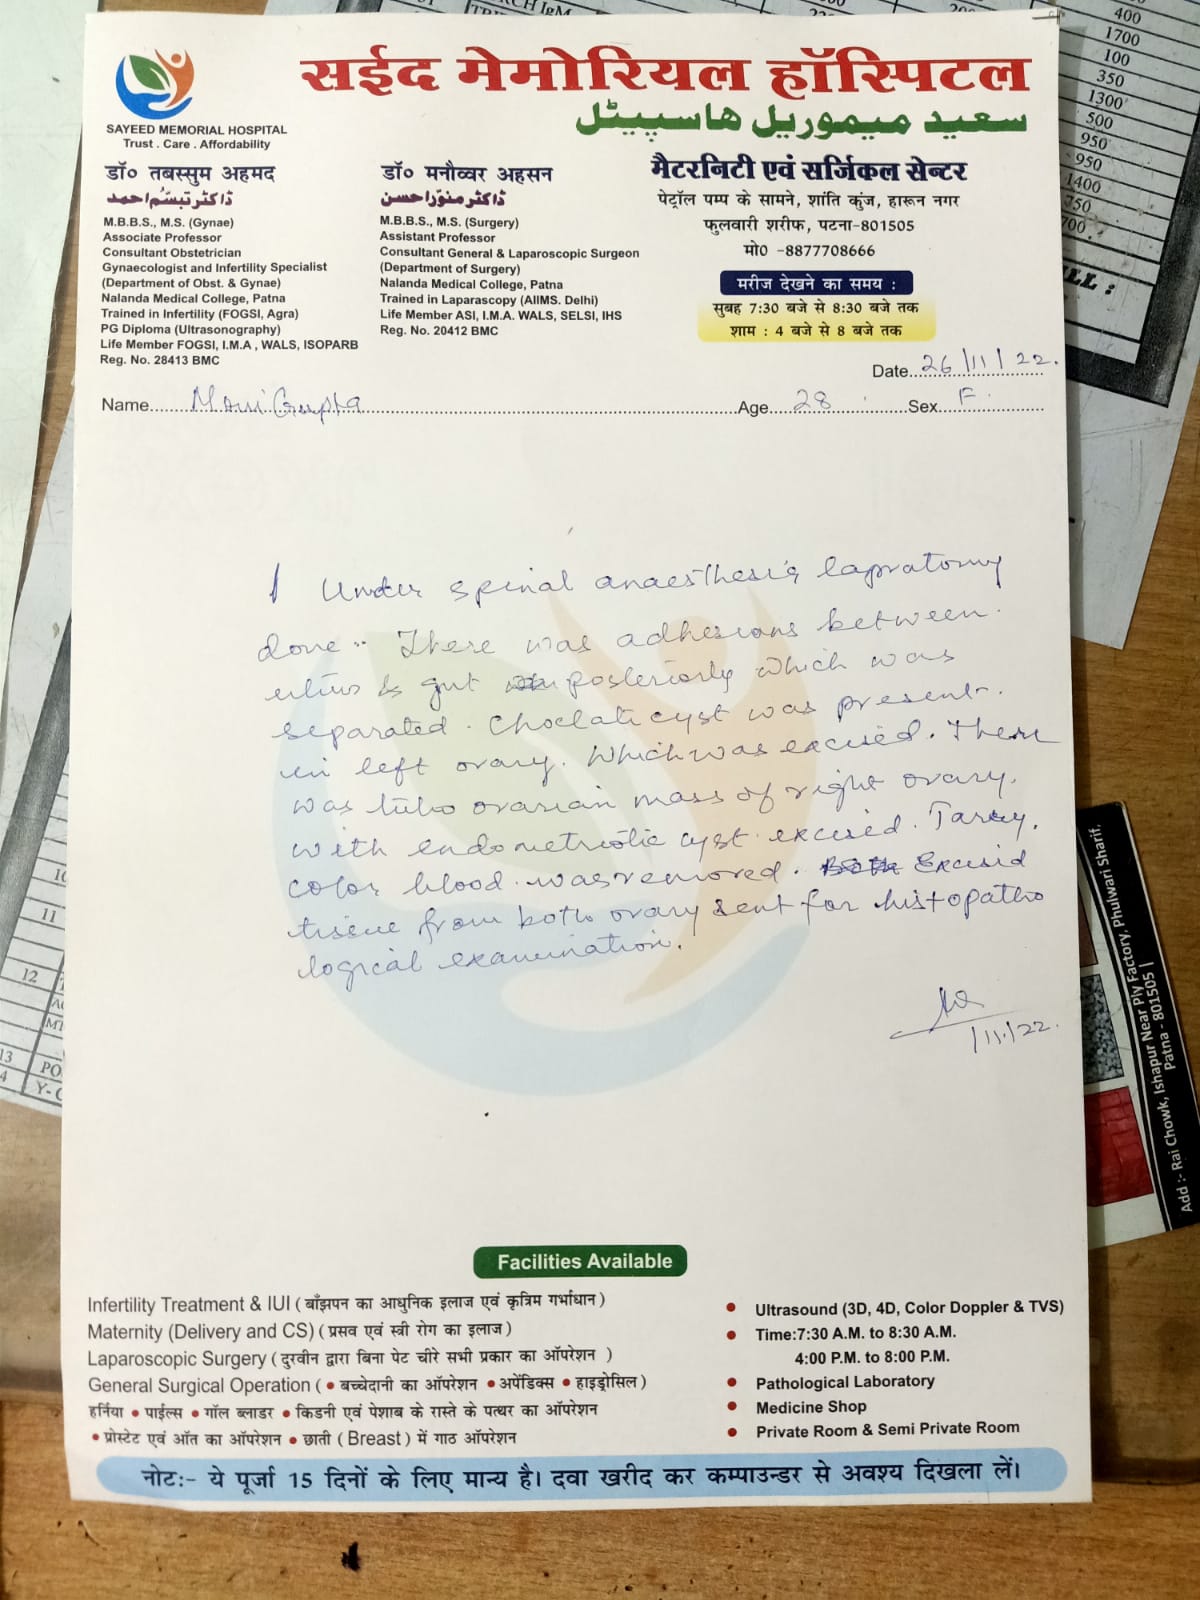 सईद मेमोरियल हॉस्पिटल
سعید میموریل ھاسپیٹل
SAYEED MEMORIAL HOSPITAL
Trust . Care . Affordability
डॉ० तबस्सुम अहमद
ڈاکٹر تبسّم احمد
M.B.B.S., M.S. (Gynae)
Associate Professor
Consultant Obstetrician
Gynaecologist and Infertility Specialist
(Department of Obst. & Gynae)
Nalanda Medical College, Patna
Trained in Infertility (FOGSI, Agra)
PG Diploma (Ultrasonography)
Life Member FOGSI, I.M.A , WALS, ISOPARB
Reg. No. 28413 BMC
डॉ० मनौव्वर अहसन
ڈاکٹر منوّر احسن
M.B.B.S., M.S. (Surgery)
Assistant Professor
Consultant General & Laparoscopic Surgeon
(Department of Surgery)
Nalanda Medical College, Patna
Trained in Laparascopy (AIIMS. Delhi)
Life Member ASI, I.M.A. WALS, SELSI, IHS
Reg. No. 20412 BMC
मैटरनिटी एवं सर्जिकल सेन्टर
पेट्रॉल पम्प के सामने, शांति कुंज, हारून नगर
फुलवारी शरीफ, पटना-801505
मो0 -8877708666
मरीज देखने का समय :
सुबह 7:30 बजे से 8:30 बजे तक
शाम : 4 बजे से 8 बजे तक
Date 26/11/22.
Name Moni Gupta Age 28 Sex F
Under spinal anaesthesia lapratomy
done.. There was adhesions between
utius & gut posteriorly which was
separated. Choclate cyst was present
in left ovary. Which was excised. There
was tubo ovarian mass of right ovary.
with endometriotic cyst excised. Tarry.
color blood was removed. Excisid
tissue from both ovary sent for histopatho
logical examination.
/11/22.
Facilities Available
Infertility Treatment & IUI ( बाँझपन का आधुनिक इलाज एवं कृत्रिम गर्भाधान )
Maternity (Delivery and CS) ( प्रसव एवं स्त्री रोग का इलाज )
Laparoscopic Surgery ( दुरवीन द्वारा बिना पेट चीरे सभी प्रकार का ऑपरेशन )
General Surgical Operation ( • बच्चेदानी का ऑपरेशन • अपेंडिक्स • हाइड्रोसिल )
हर्निया • पाईल्स • गॉल ब्लाडर • किडनी एवं पेशाब के रास्ते के पत्थर का ऑपरेशन
• प्रोस्टेट एवं आँत का ऑपरेशन • छाती ( Breast ) में गाठ ऑपरेशन
• Ultrasound (3D, 4D, Color Doppler & TVS)
• Time:7:30 A.M. to 8:30 A.M.
4:00 P.M. to 8:00 P.M.
• Pathological Laboratory
• Medicine Shop
• Private Room & Semi Private Room
नोटः- ये पूर्जा 15 दिनों के लिए मान्य है। दवा खरीद कर कम्पाउन्डर से अवश्य दिखला लें।
400
1700
100
350
1300
500
950
950
1400
Add :- Rai Chowk, Ishapur Near Ply Factory, Phulwari Sharif,
Patna - 801505 |
11
12
13